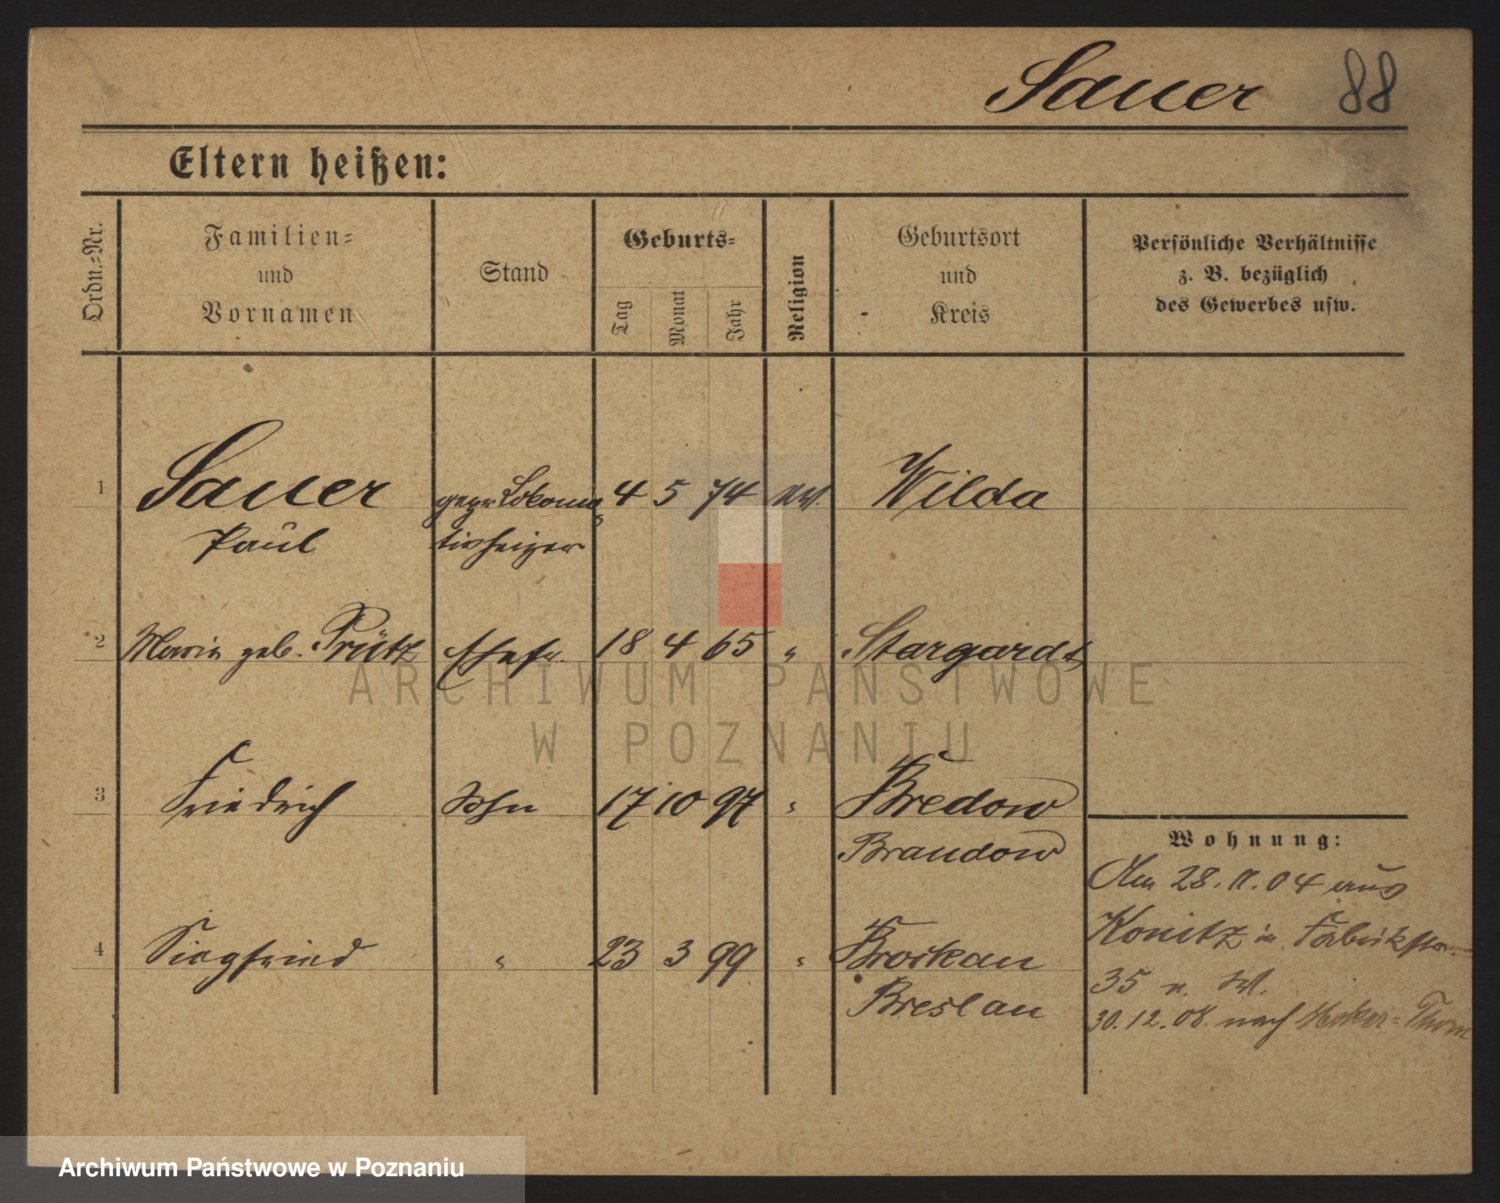 Sauer 88
Eltern heißen:
Ordn.-Nr.
Familien-
und
Vornamen
Stand
Geburts-
Tag
Monat
Jahr
Religion
Geburtsort
und
Kreis
Persönliche Verhältnisse
z. B. bezüglich
des Gewerbes usw.
1 Sauer gepr Lokomo 4 5 74 ev. Wilda
Paul tivheizer
2 Marie geb. Prütz Ehefr. 18 4 65 " Stargardt
3 Friedrich Sohn 17 10 97 " Bredow
Brandow
4 Siegfried " 23 3 99 " Brockau
Breslau
Wohnung:
Am 28.11.04 aus
Konitz in Fabrikstr.
35 n. W.
30.12.08. nach Mocker-Thorn
ARCHIWUM PAŃSTWOWE
W POZNANIU
Archiwum Państwowe w Poznaniu